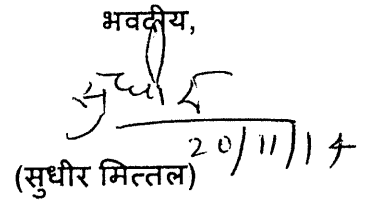 भवदीय,
सुधीर
20/11/14
(सुधीर मित्तल)